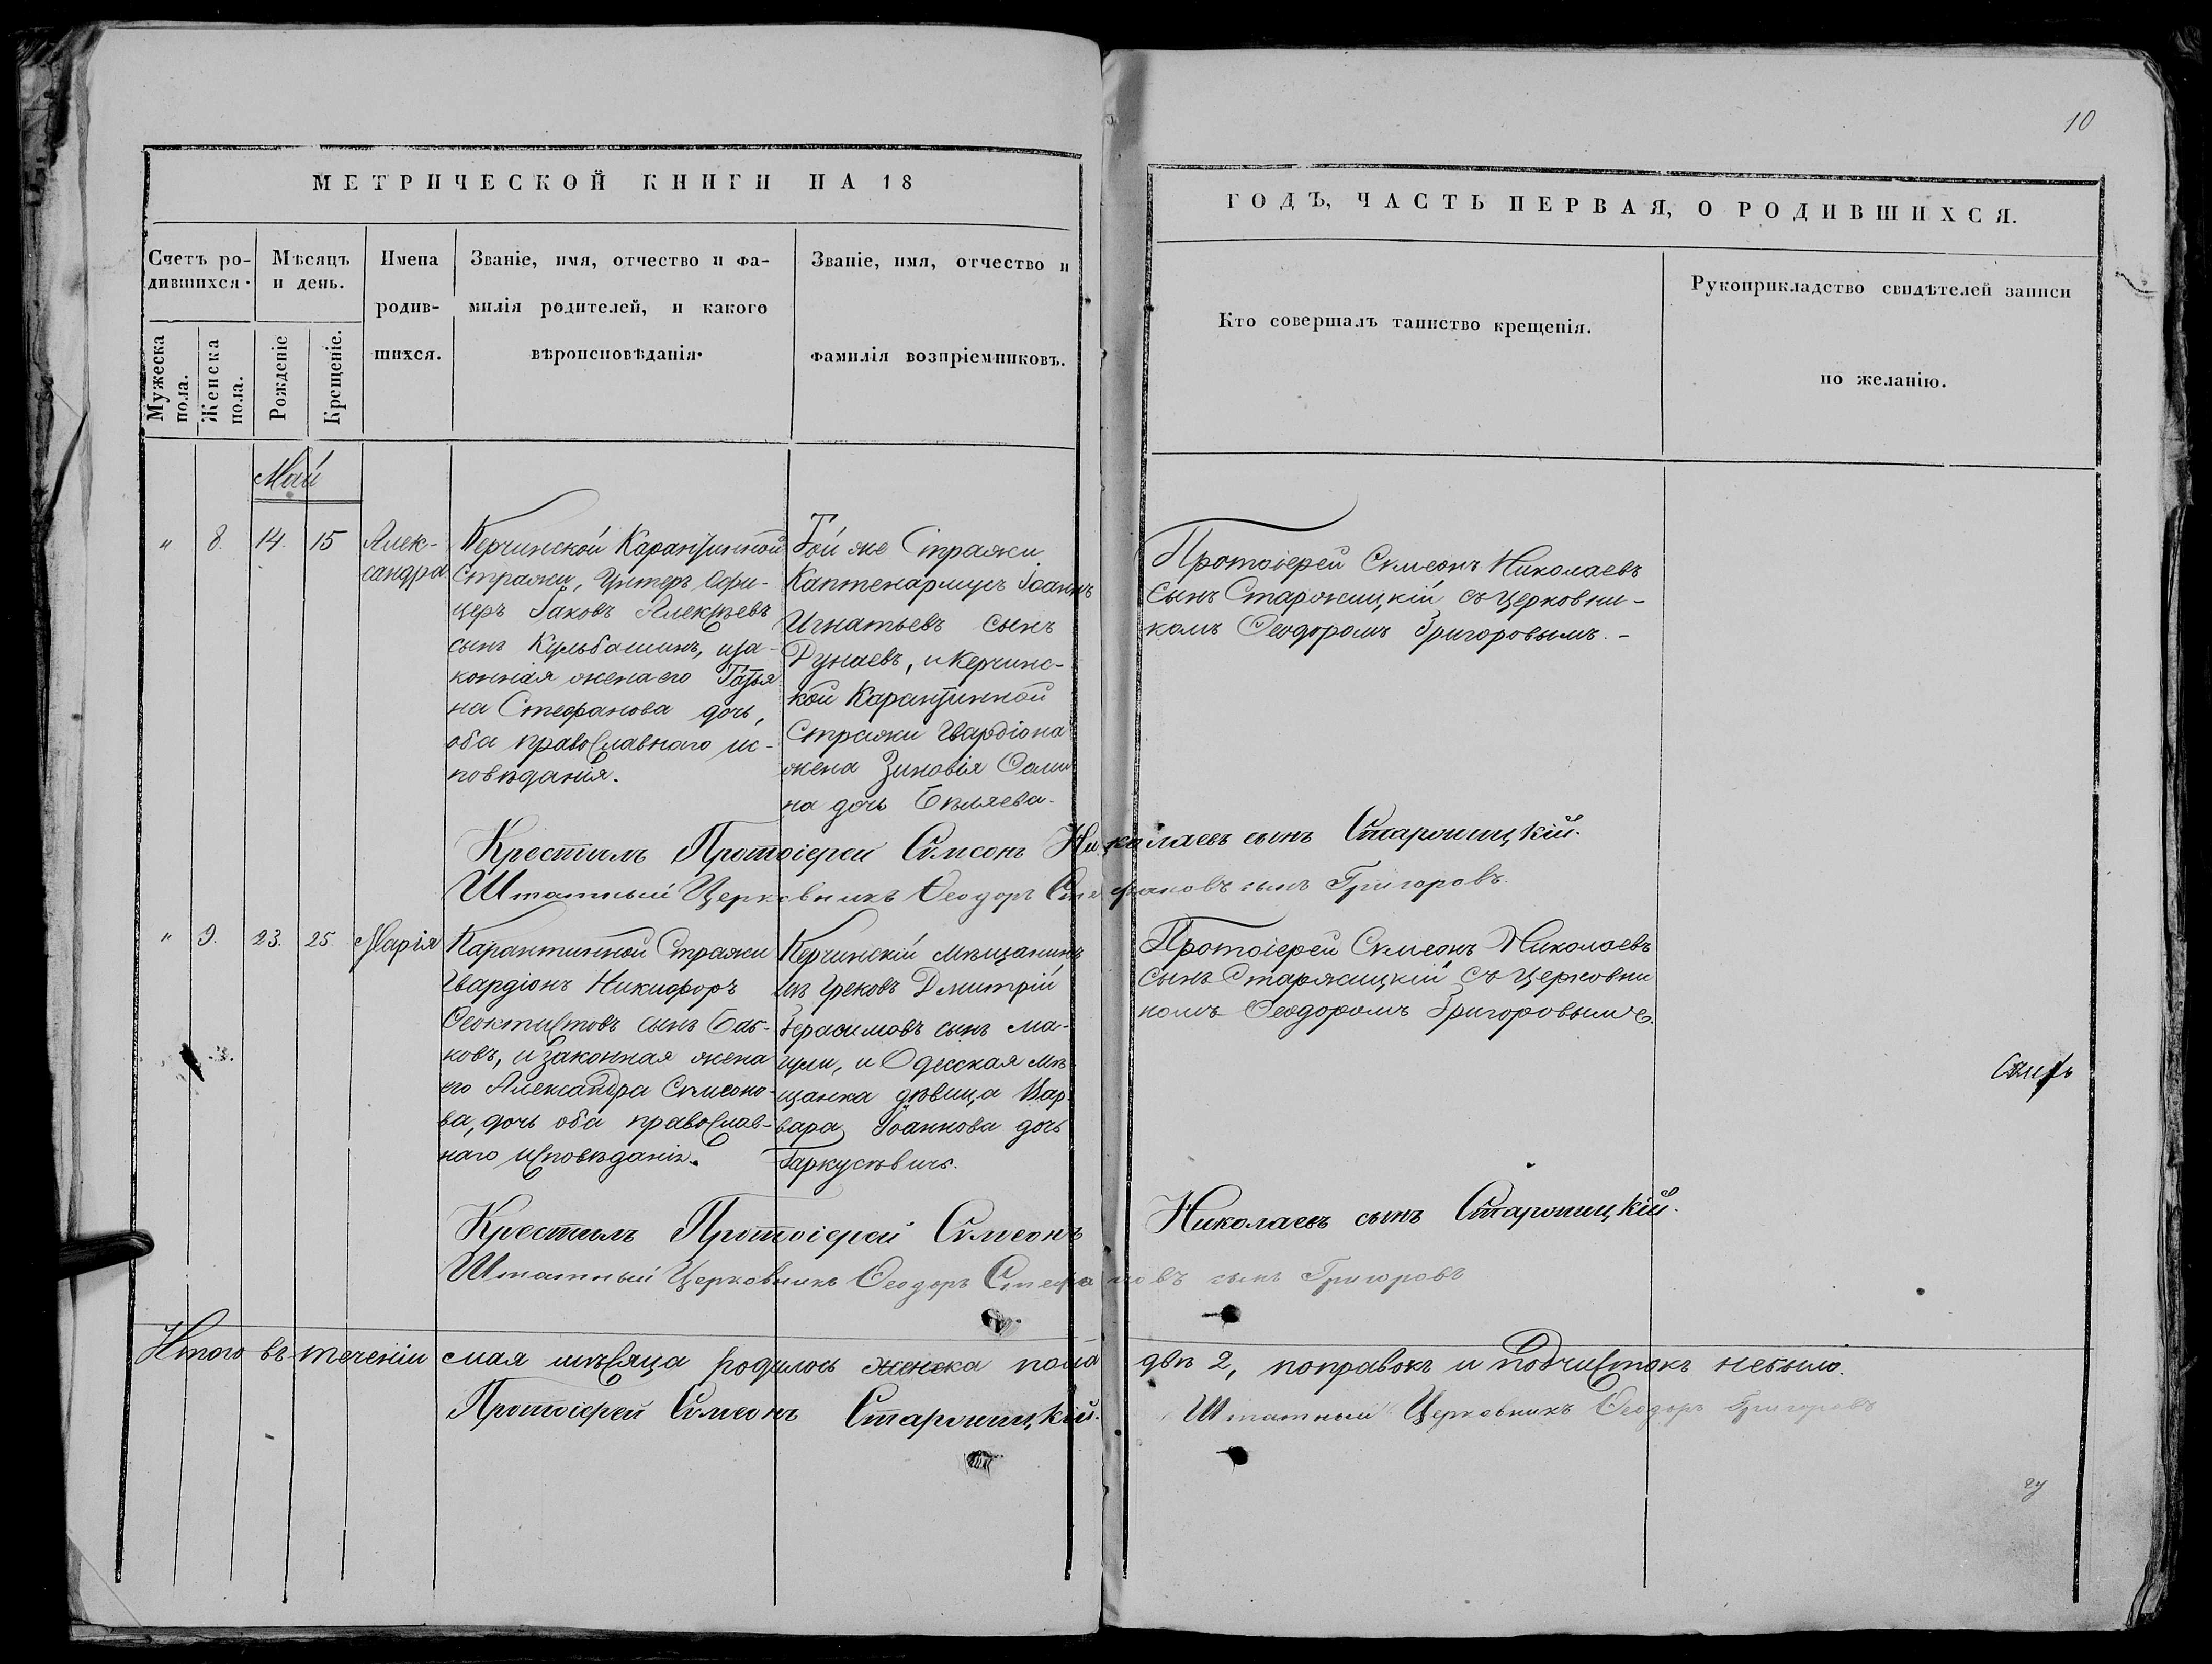 10
МЕТРИЧЕСКОЙ КНИГИ НА 18
ГОДЪ, ЧАСТЬ ПЕРВАЯ, О РОДИВШИХСЯ.
Счетъ ро-
дившихся.
Мужеска
пола.
Женска
пола.
Мѣсяцъ
и день.
Рожденіе
Крещеніе.
Имена
родив-
шихся.
Званіе, имя, отчество и фа-
милія родителей, и какого
вѣроисповѣданія.
Званіе, имя, отчество и
фамилія воспріемниковъ.
Кто совершалъ таинство крещенія.
Рукоприкладство свидѣтелей записи
по желанію.
Май
" 8. 14. 15
Алек-
сандра
Керчинской Карантинной
Стражи, Унтеръ Офи-
церъ Іаковъ Алексѣевъ
сынъ Кульбашинъ, иза-
конная жена его Татья
на Стефанова дочь,
оба православнаго ис-
повѣданія.
Той же Стражи
Каптенармусъ Іоаннъ
Игнатьевъ сынъ
Дунаевъ, и Керчинс-
кой Карантинной
Стражи Гвардіона
жена Зиновія Ѳоми
на дочь Бѣляева.
Протоіерей Сѵмеонъ Николаевъ
сынъ Старожицкій съ церковни-
комъ Ѳеодоромъ Григоровымъ. -
Крестилъ Протоіерей Сѵмеонъ Николаевъ сынъ Старожицкій.
Штатный Церковникъ Ѳеодоръ Стефановъ сынъ Григоровъ.
" 9. 23. 25
Марія
Карантинной Стражи
Гвардіонъ Никифоръ
Ѳеоктистовъ сынъ
ковъ, и законная жена
его Александра Сѵмеоно-
ва, дочь оба православ-
наго исповѣданія.
Керчинскій Мѣщанинъ
изъ Грековъ Дмитрій
Герасимовъ сынъ Ма-
и Одесская мѣ-
щанка дѣвица Вар-
вара Іоаннова дочь
Гаркусѣвичъ.
Протоіерей Сѵмеонъ Николаевъ
сынъ Старожицкій съ церковни
комъ Ѳеодоромъ Григоровымъ.
Крестилъ Протоіерей Сѵмеонъ Николаевъ сынъ Старожицкій.
Штатный Церковникъ Ѳеодоръ Стефановъ сынъ Григоровъ
Итого въ теченіи мая мѣсяца родилось женска пола двѣ 2, поправокъ и подчистокъ небыло.
Протоіерей Сѵмеонъ Старожицкій.
Штатный Церковникъ Ѳеодоръ Григоровъ